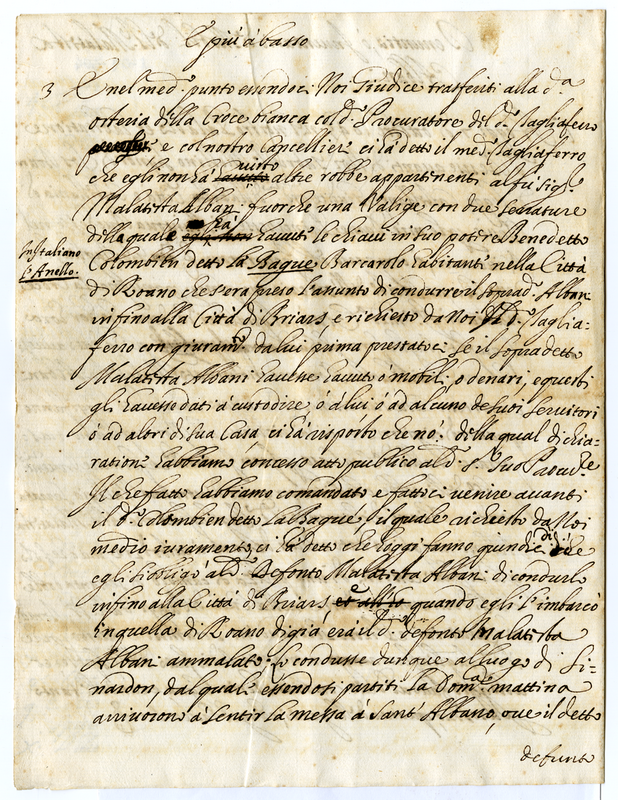 E più à basso
3 E nel med.º punto essendoci Noi Giudice trasferiti alla d.ª
osteria della Croce bianca col d.º Procuratore del d.º Tagliaferro
e col nostro Cancellier ci hà detto il med.º Tagliaferro
che egli non hà visto altre robbe appartenenti al fù sig.r
Malatista Albani fuorche una Valige con due serrature
della quale hà havute le chiavi in suo potere Benedetto
Colombien detto la Baque Barcarolo habitante nella Città
In Italiano
l'Anello.
di Roano che s'era preso l'assunto di condurre il soprad.º Albani
infino alla Città di Briars e richiesto da Noi il d.º Taglia-
ferro con giuram.to da lui prima prestatoci se il sopradetto
Malatista Albani havesse havuto ò mobili, o denari, e questi
gli havesse dati à custodire, ò à lui ò ad alcuno de suoi servitori
ò ad altri di sua Casa, ci hà risposto che nò. della qual dichia-
ratione habbiamo concesso atto publico al d.º s.r suo Procur.re
Il che fatto habbiamo comandato e fattoci venire avanti
il d.º Colombien detto La Baque il quale richiesto da Noi
medio iuramento, ci hà detto che hoggi fanno quindici dì che
egli si obligò al d.º Defonto Malatista Albani di condurlo
infino alla Città di Briars quando egli l'imbarcò
in quella di Roano di già era il d.º defonto Malatista
Albani ammalato: Lo condusse dunque al luogo di Si-
nardon, dal quale essendosi partiti la Dom.ca mattina
arrivorono à sentir la messa à Sant'Albano, ove il detto
defunto